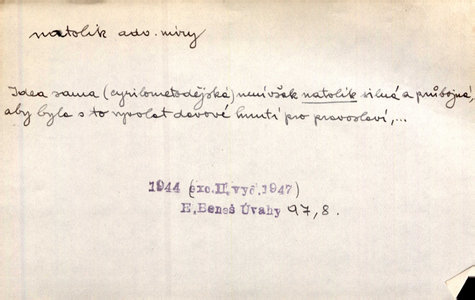 natolik adv. míry
Idea sama (cyrilometodějská) není však natolik silná a průbojná,
aby byla s to vyvolat davové hnutí pro pravoslaví,...
1944 (exc.II.vyd.1947)
E.Beneš Úvahy 97,8.